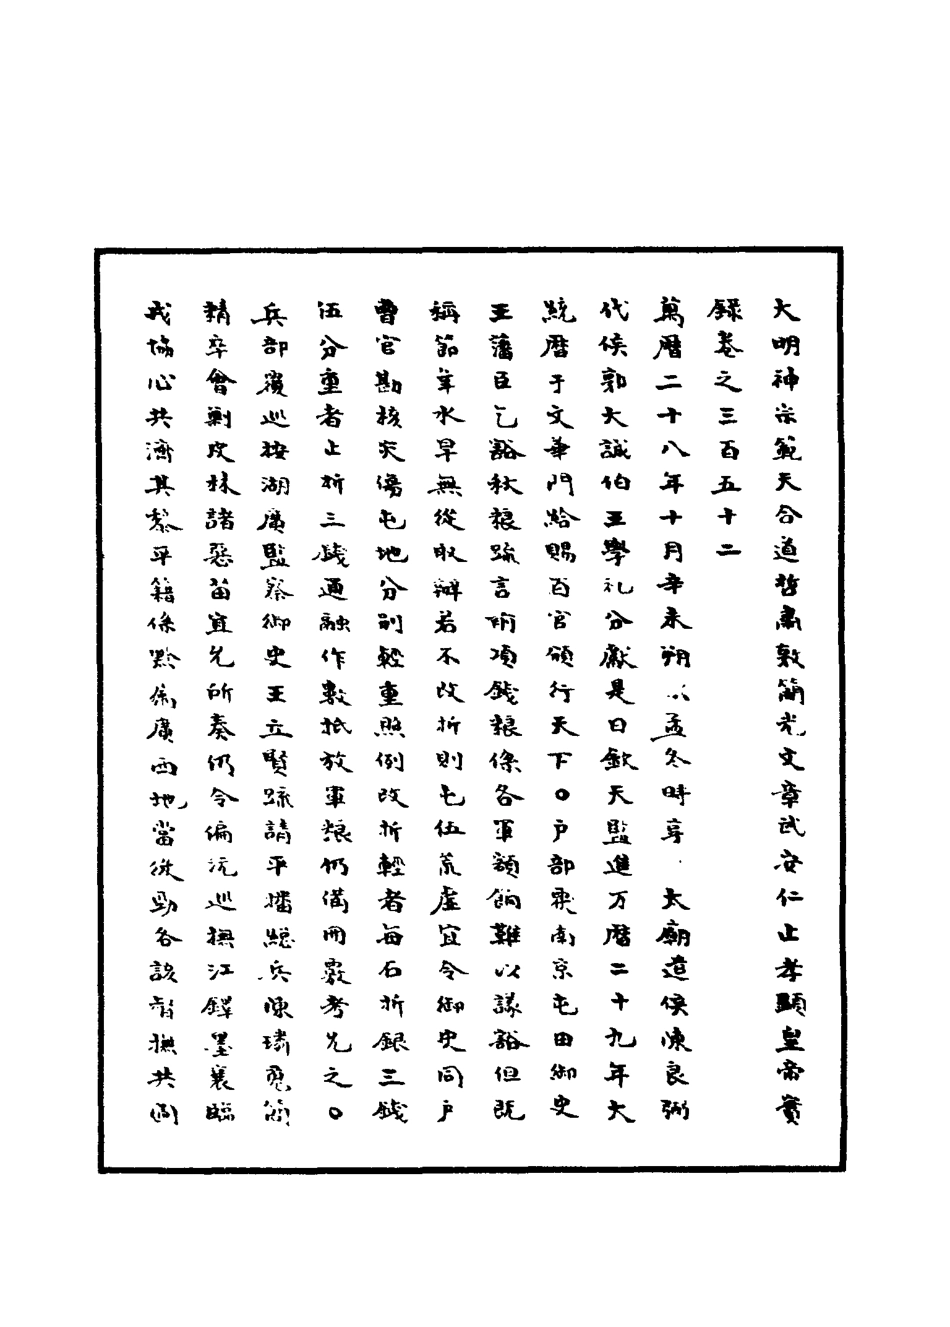 大明神宗範天合道哲肅敦簡光文章武安仁止孝顯皇帝實
錄卷之三百五十二
萬曆二十八年十月辛未朔以孟冬時享太廟遣侯陳良弼
代侯郭大誠伯王學礼分獻是日欽天監進万曆二十九年大
統曆于文華門給賜百官頒行天下○户部覆南京屯田御史
王藩臣乞豁秋粮疏言兩項錢粮係各軍額餉難以議豁但既
稱節年水旱無從取辦若不改折則屯伍荒虛宜令御史同户
曹官勘核灾傷屯地分別輕重照例改折輕者每石折銀三錢
伍分重者止折三錢通融作數抵放軍粮仍備冊覈考允之○
兵部覆巡按湖廣監察御史王立賢疏請平播總兵陳璘選簡
精卒會剿皮林諸惡苗宜允所奏仍令偏沅巡撫江鐸墨衰臨
戎協心共濟其黎平籍係黔屬廣西地當後勁各該督撫共圖